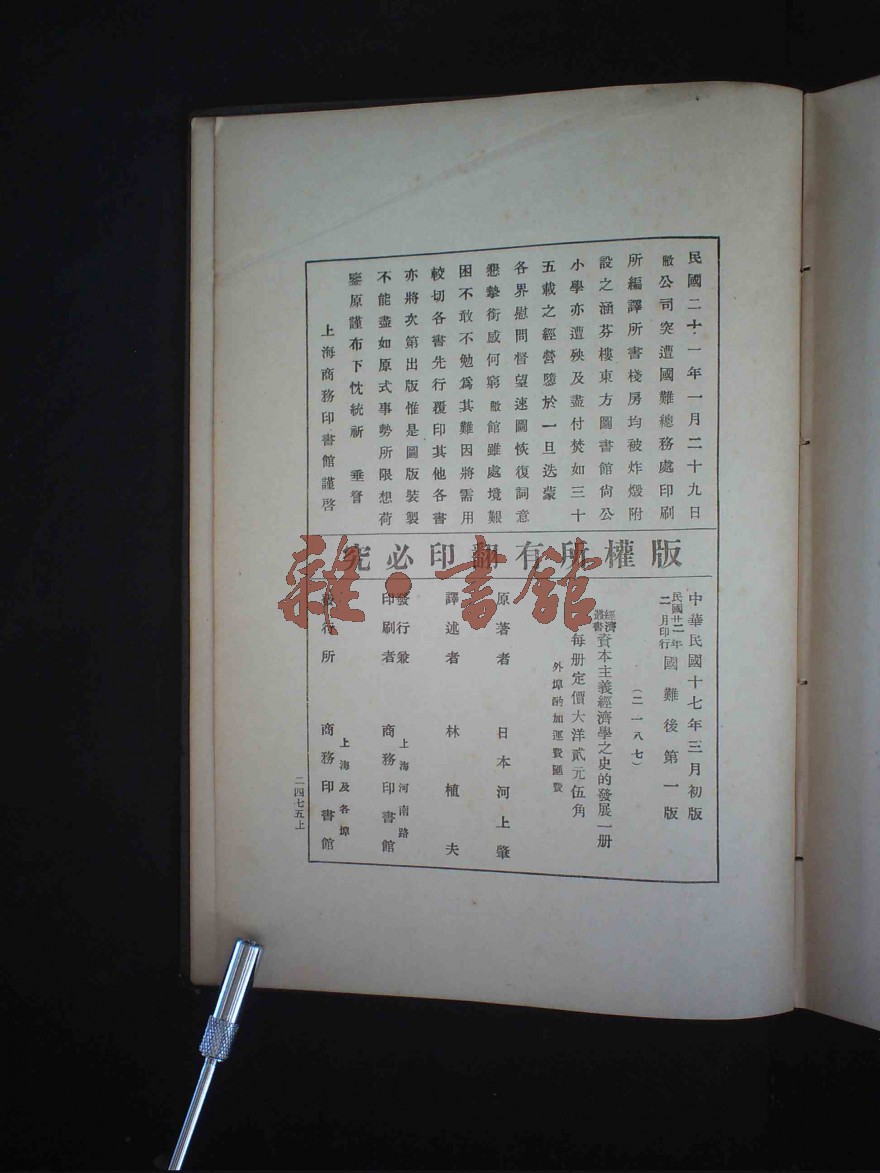 民國二十一年一月二十九日
敝公司突遭國難總務處印刷
所編譯所書棧房均被炸燬附
設之涵芬樓東方圖書館尙公
小學亦遭殃及盡付焚如三十
五載之經營隳於一旦迭蒙
各界慰問督望速圖恢復詞意
懇摯銜感何窮敝館雖處境艱
困不敢不勉爲其難因將需用
較切各書先行覆印其他各書
亦將次第出版惟是圖版裝製
不能盡如原式事勢所限想荷
鑒原謹布下忱統祈 垂詧
上海商務印書館謹啓
版權所有翻印必究
中華民國十七年三月初版
民國廿二年二月印行 國難後第一版
（二一八七）
經濟叢書 資本主義經濟學之史的發展一册
每册定價大洋貳元伍角
外埠酌加運費匯費
原著者 日本河上肇
譯述者 林植夫
發行兼印刷者 上海河南路 商務印書館
發行所 上海及各埠 商務印書館
二四七五上
雜·書館